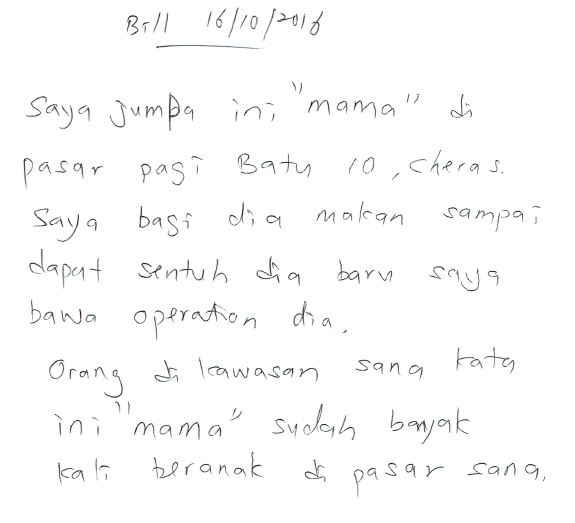 Bill 16/10/2016
Saya jumpa ini "mama" di
pasar pagi Batu 10, cheras.
Saya bagi dia makan sampai
dapat sentuh dia baru saya
bawa operation dia.
Orang di kawasan sana kata
ini "mama" sudah banyak
kali beranak di pasar sana.